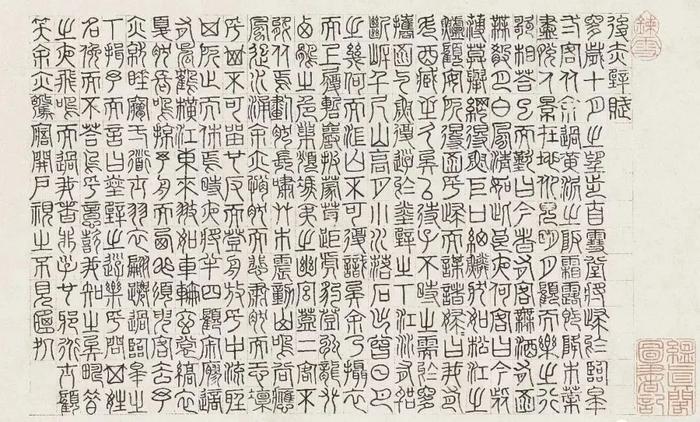 後赤壁賦
是歲十月之望步自雪堂將歸於臨皋
二客從余過黃泥之坂霜露既降木葉
盡脫人景在地仰見明月顧而樂之行
歌相答已而歎曰今者有客無酒有酒
無肴月白風清如此良夜何客曰今者
薄莫舉網得魚巨口細鱗狀如松江之
鱸顧安所得酒乎歸而謀諸婦婦曰我有
斗酒藏之久矣以待子不時之需於是
攜酒與魚復遊於赤壁之下江流有聲
斷岸千尺山高月小水落石出曾日月
之幾何而江山不可復識矣余乃攝衣
而上履巉巖披蒙茸踞虎豹登虯龍攀
棲鶻之危巢俯馮夷之幽宮蓋二客不
能從焉劃然長嘯草木震動山鳴谷應
風起水涌余亦悄然而悲肅然而恐凜
乎其不可留也反而登舟放乎中流聽
其所止而休焉時夜將半四顧寂寥適
有孤鶴橫江東來翅如車輪玄裳縞衣
戛然長鳴掠予舟而西也須臾客去予
亦就睡夢一道士羽衣翩躚過臨皋之
下揖予而言曰赤壁之遊樂乎問其姓
名俛而不答嗚呼噫嘻我知之矣疇昔
之夜飛鳴而過我者非子也耶道士顧
笑余亦驚寤開戶視之不見其處